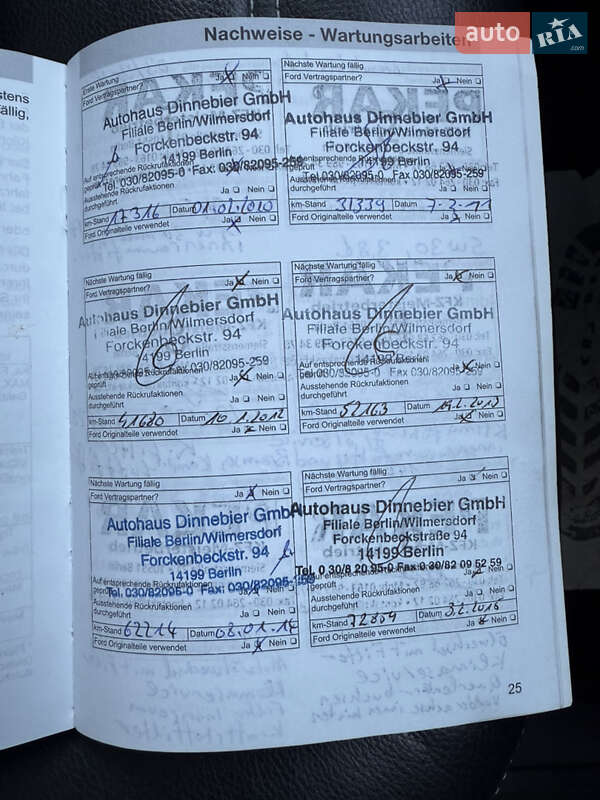 auto RIA .com
Nachweise - Wartungsarbeiten
Erste Wartung
Ford Vertragspartner? Ja Nein
Autohaus Dinnebier GmbH
Filiale Berlin/Wilmersdorf
Forckenbeckstr. 94
14199 Berlin
Tel. 030/82095-0 Fax 030/82095-259
Auf entsprechende Rückrufaktionen
geprüft
Ausstehende Rückrufaktionen
durchgeführt Ja Nein
km-Stand 17316 Datum 01.02.2010
Ford Originalteile verwendet Ja Nein
Nächste Wartung fällig
Ford Vertragspartner? Ja Nein
Autohaus Dinnebier GmbH
Filiale Berlin/Wilmersdorf
Forckenbeckstr. 94
14199 Berlin
Tel. 030/82095-0 Fax 030/82095-259
Ausstehende Rückrufaktionen
durchgeführt Ja Nein
km-Stand 31339 Datum 7-2-11
Ford Originalteile verwendet Ja Nein
Nächste Wartung fällig
Ford Vertragspartner? Ja Nein
Autohaus Dinnebier GmbH
Filiale Berlin/Wilmersdorf
Forckenbeckstr. 94
14199 Berlin
030/82095-259
geprüft Ja Nein
Ausstehende Rückrufaktionen
durchgeführt Ja Nein
km-Stand 41680 Datum 10.1.2012
Ford Originalteile verwendet Ja Nein
Nächste Wartung fällig
Ford Vertragspartner? Ja Nein
Autohaus Dinnebier GmbH
Filiale Berlin/Wilmersdorf
Forckenbeckstr. 94
14199 Berlin
Auf entsprechende Rückrufaktionen
Tel. 030/82095-0 Fax 030/82095-259
geprüft Ja Nein
Ausstehende Rückrufaktionen
durchgeführt Ja Nein
km-Stand 52163 Datum
Ford Originalteile verwendet Ja Nein
Nächste Wartung fällig
Ford Vertragspartner? Ja Nein
Autohaus Dinnebier GmbH
Filiale Berlin/Wilmersdorf
Forckenbeckstr. 94
14199 Berlin
Auf entsprechende Rückrufaktionen
Tel. 030/82095-0 Fax 030/82095-259
geprüft
Ausstehende Rückrufaktionen
durchgeführt Ja Nein
km-Stand 62214 Datum 08.01.14
Ford Originalteile verwendet Ja Nein
Nächste Wartung fällig
Ford Vertragspartner? Ja Nein
Autohaus Dinnebier GmbH
Filiale Berlin/Wilmersdorf
Forckenbeckstraße 94
14199 Berlin
Tel. 0 30/8 20 95-0 Fax 0 30/82 09 52 59
Auf entsprechende Rückrufaktionen
geprüft Ja Nein
Ausstehende Rückrufaktionen
durchgeführt Ja Nein
km-Stand 72854 Datum 3.2.2015
Ford Originalteile verwendet Ja Nein
25